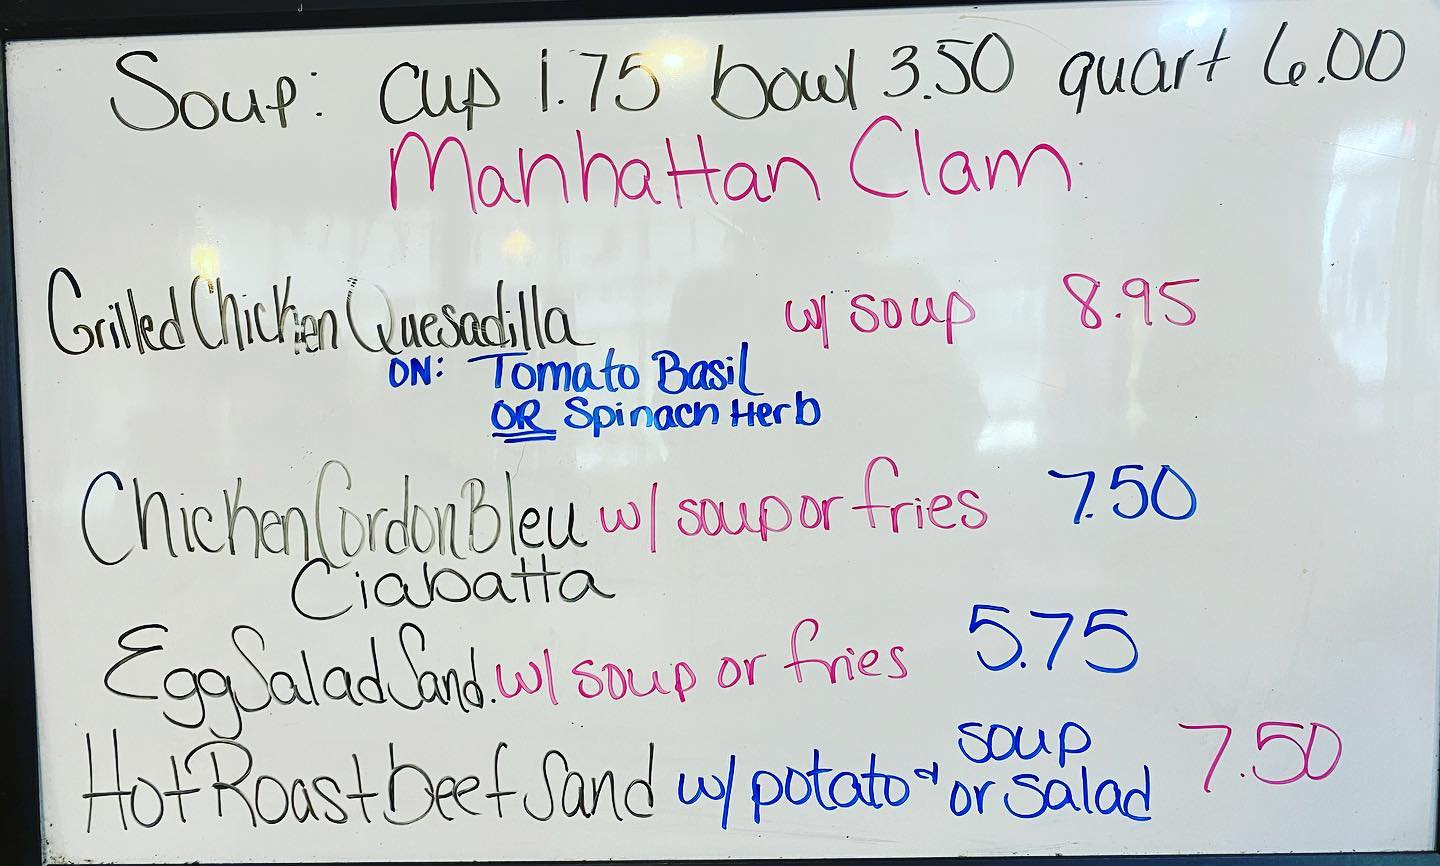 Soup: cup 1.75 bowl 3.50 quart 6.00
Manhattan Clam
Grilled Chicken Quesadilla w/ soup 8.95
ON: Tomato Basil
OR Spinach Herb
Chicken Cordon Bleu w/ soup or fries 7.50
Ciabatta
Egg Salad Sand. w/ soup or fries 5.75
Hot Roast beef Sand w/ potato & soup or Salad 7.50